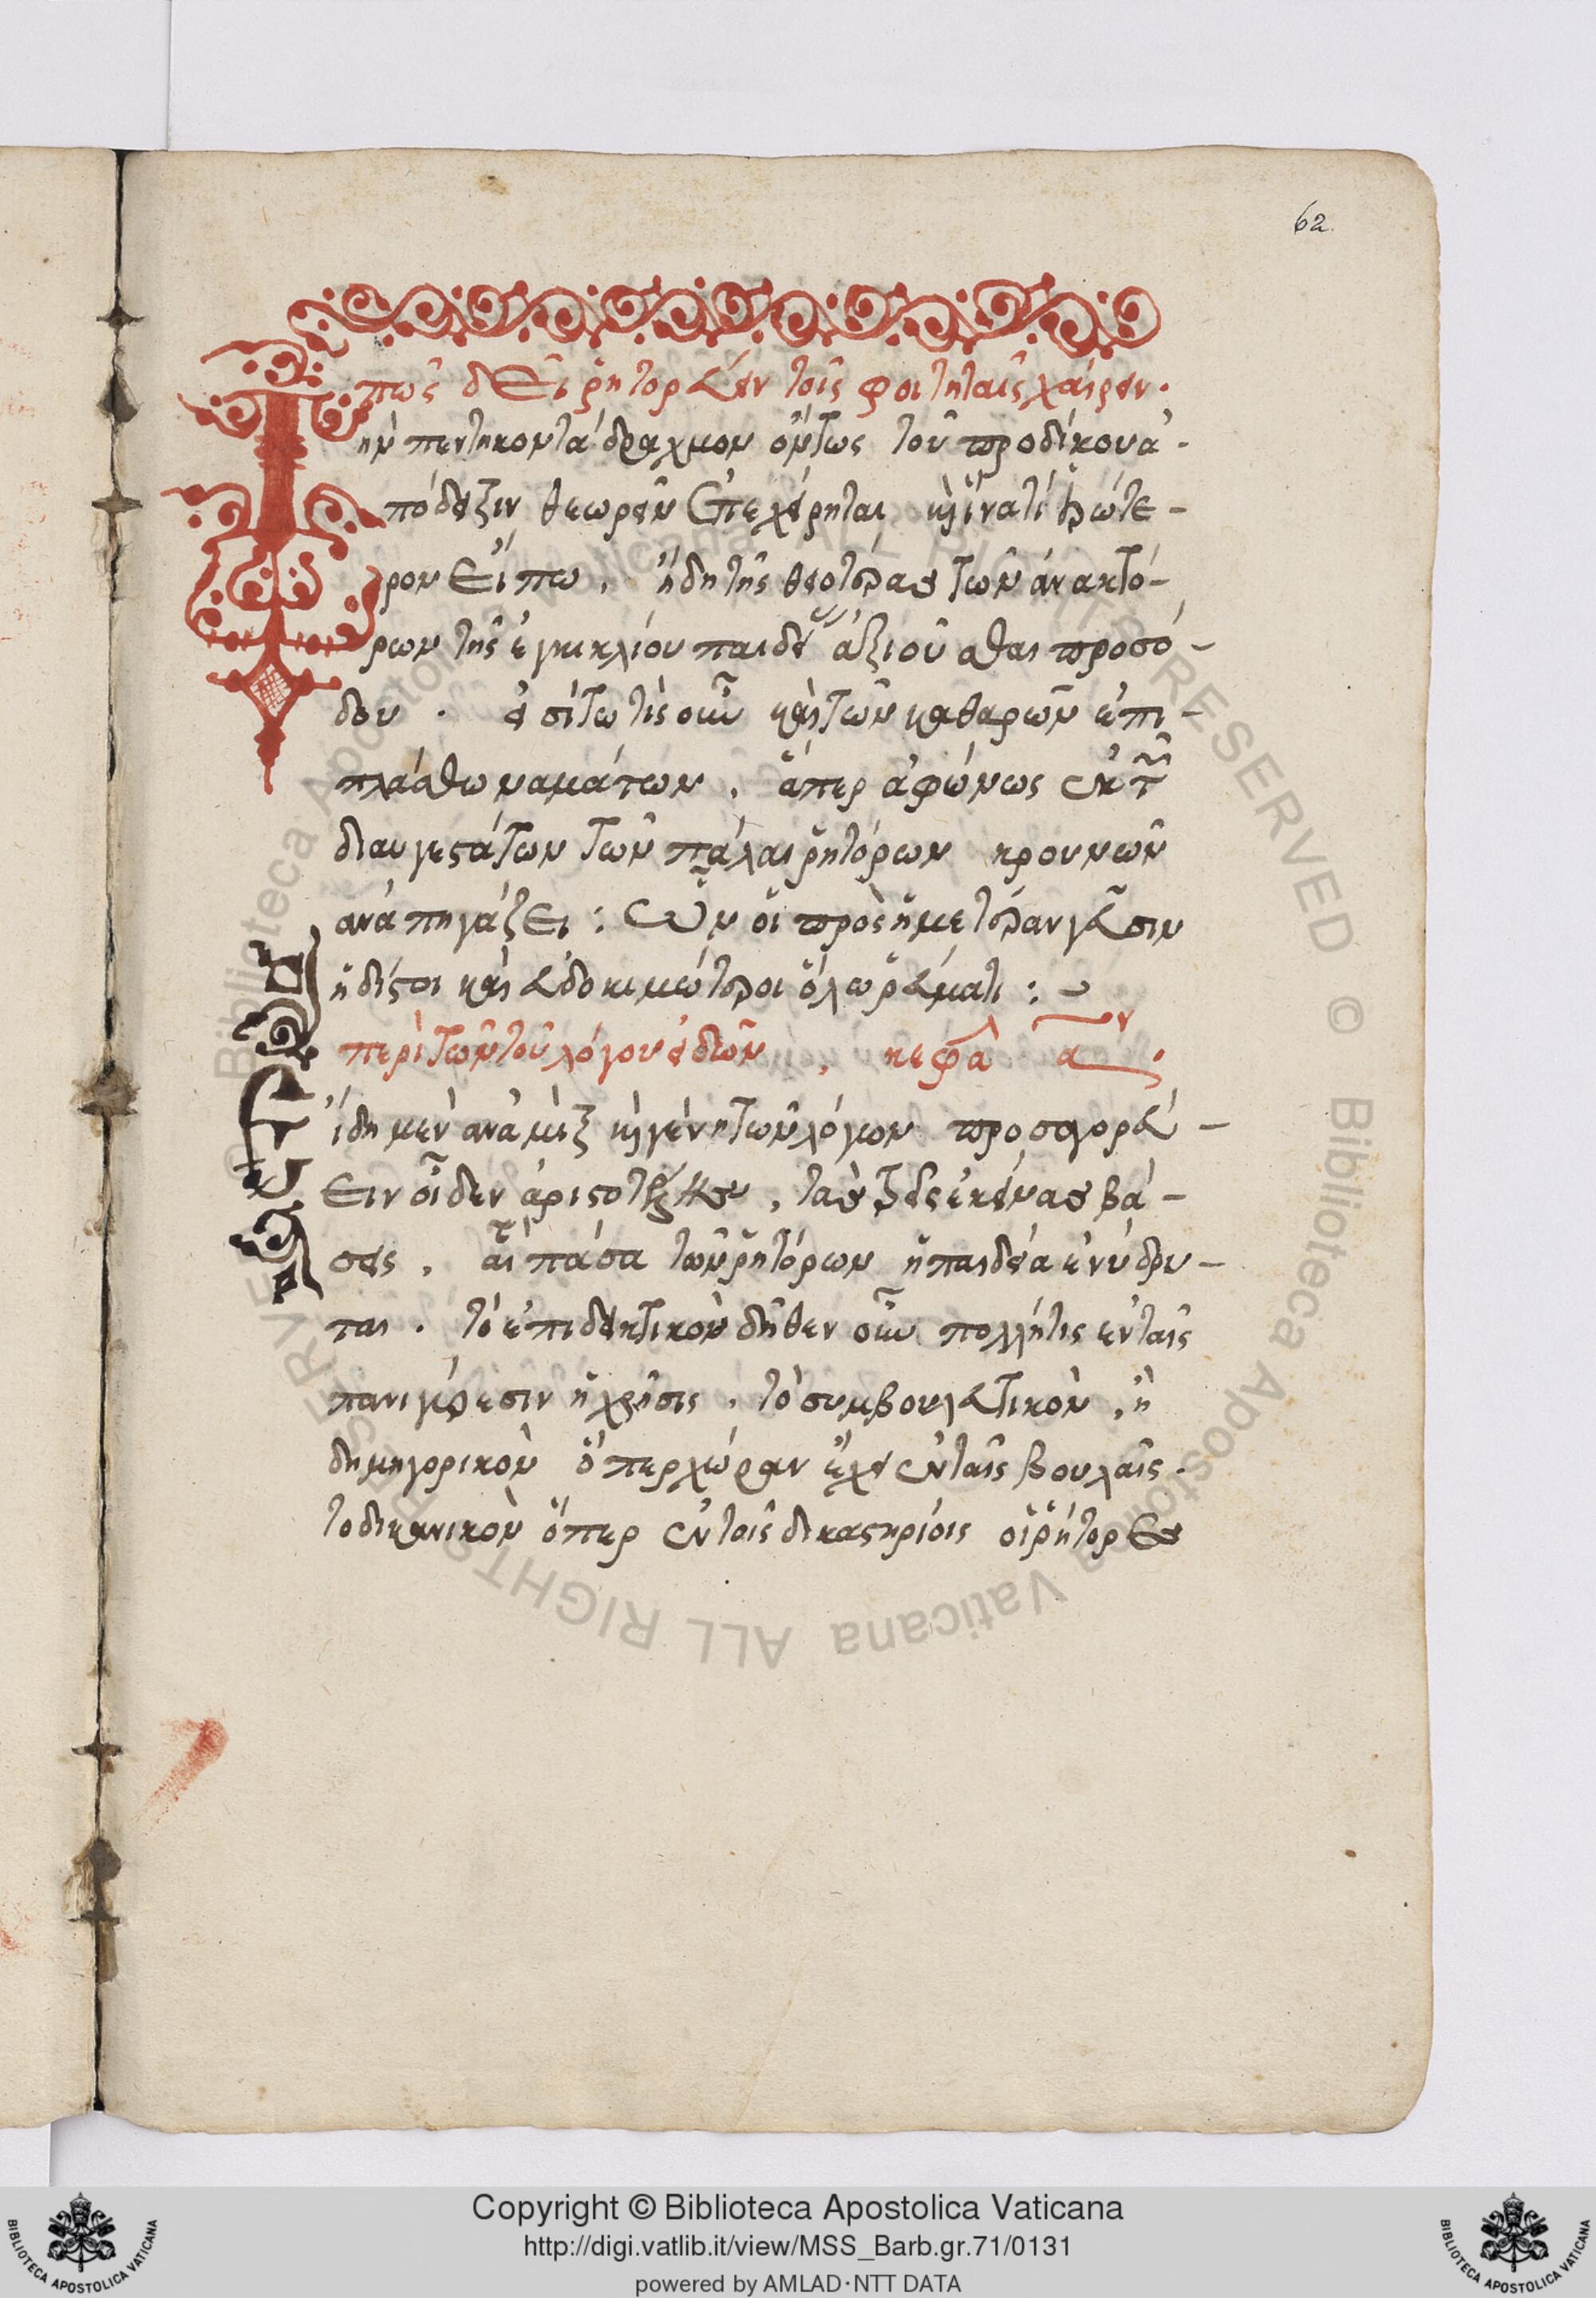 62
πῶς δεῖ ῥητορεύειν τοῖς φοιτηταῖς χαίρειν.
Τὴν πεντηκοντάδραχμον ὄντως τοῦ προδίκου ἀ-
πόδειξιν θεωρεῖν ἐπιχείρηται, καὶ ἵνα τί ἱερώτε-
ρον εἴπω. ἤδη τῆς θεοτέρας τῶν ἀνακτό-
ρων τῆς ἐγκυκλίου παιδείας ἀξιοῦσθαι προσό-
δου. εἰσίτω τὶς οὖν καὶ τῶν καθαρῶν ἐπι-
πλάσθω ναμάτων. ἅπερ ἀφώνως ἐκ τῶν
διαυγεστάτων τῶν πάλαι ῥητόρων κρουνῶν
ἀναπηγάζει: ὧν οἱ πρὸς ἡμετέραν γεῦσιν
ἥδιστοι καὶ εὐδοκιμώτεροι ὅλῳ ῥεύματι:
περὶ τῶν τοῦ λόγου εἰδῶν, κεφα α̅ον.
Εἴδη μὲν ἀναμὶξ καὶ γένη τῶν λόγων προσαγορεύ-
ειν οἶδεν ἀριστοτέλης, τὰς τρεῖς ἐκείνας βά-
σεις, αἷς πᾶσα τῶν ῥητόρων ἡ παιδεία ἐνίδρυ-
ται. τὸ ἐπιδεικτικὸν δῆθεν οὗ πολλή τις ἐν ταῖς
πανιγύρεσιν ἡ χρῆσις. τὸ συμβουλευτικὸν, ἢ
δημηγορικὸν ὅπερ χώραν ἔχει ἐν ταῖς βουλαῖς.
τὸ δικανικὸν ὅπερ ἐν τοῖς δικαστηρίοις οἱ ῥήτορες
Copyright © Biblioteca Apostolica Vaticana
http://digi.vatlib.it/view/MSS_Barb.gr.71/0131
powered by AMLAD·NTT DATA
BIBLIOTECA APOSTOLICA VATICANA
BIBLIOTECA APOSTOLICA VATICANA
© Biblioteca Apostolica Vaticana ALL RIGHTS RESERVED © Biblioteca Apostolica Vaticana ALL RIGHTS RESERVED